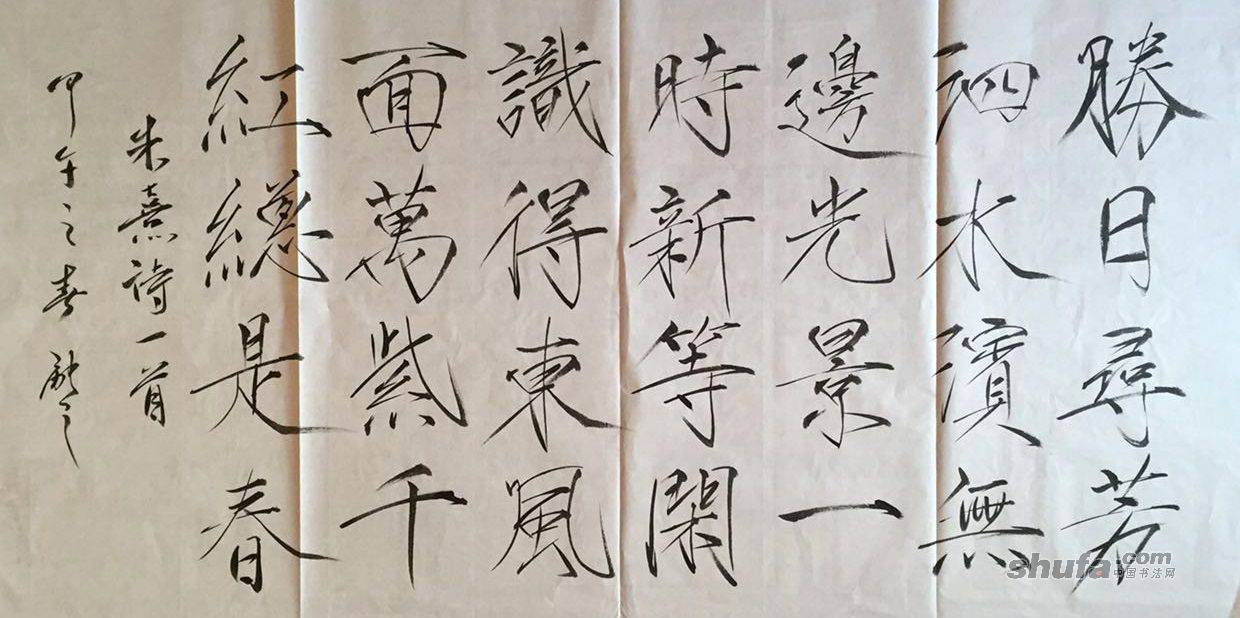 勝日尋芳
泗水濱無
邊光景一
時新等閑
識得東風
面萬紫千
紅總是春
朱熹詩一首
甲午之春
shufa.com
中国书法网